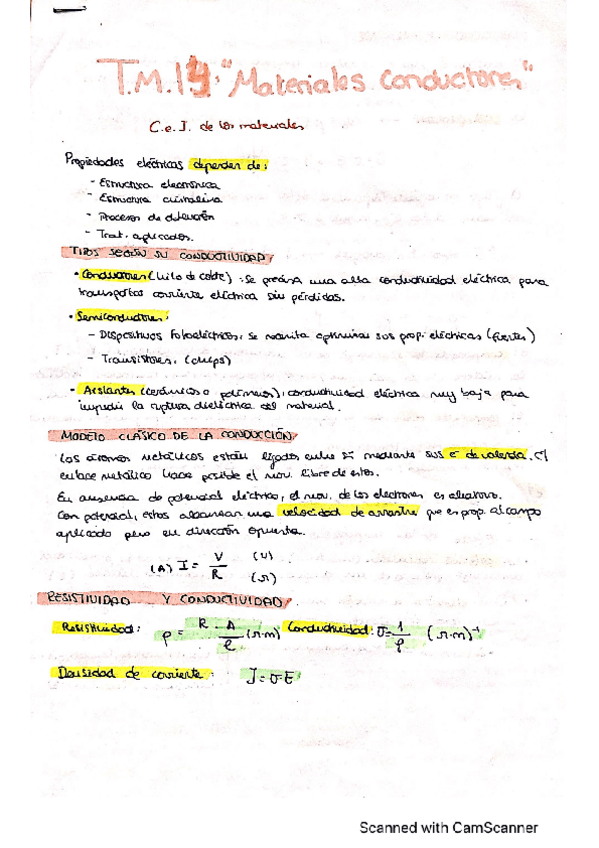 T.M.14: "Materiales conductores"
C.e.I. de los materiales
Propiedades eléctricas dependen de:
- Estructura electrónica
- Estructura cristalina
- Procesos de
- Trat. aplicados.
TIPOS SEGÚN SU CONDUCTIVIDAD
• Conductores (hilo de cobre): Se precisa una alta conductividad eléctrica para
transportar corriente eléctrica sin pérdidas.
• Semiconductores:
- Dispositivos fotoeléctricos, se necesita optimizar sus prop. eléctricas (fuertes)
- Transistores. (chips)
• Aislantes (cerámicos o polímeros): conductividad eléctrica muy baja para
impedir la ruptura dieléctrica del material.
MODELO CLÁSICO DE LA CONDUCCIÓN
Los átomos metálicos están ligados entre sí mediante sus e⁻ de valencia. El
enlace metálico hace posible el mov. libre de estos.
En ausencia de potencial eléctrico, el mov. de los electrones es aleatorio.
Con potencial, estos alcanzan una velocidad de arrastre que es prop. al campo
aplicado pero en dirección opuesta.
(A) I = V/R (V) (Ω)
RESISTIVIDAD Y CONDUCTIVIDAD
Resistividad: ρ = R·A/l (Ω·m) Conductividad: σ = 1/ρ (Ω·m)⁻¹
Densidad de corriente: J = σE
Scanned with CamScanner